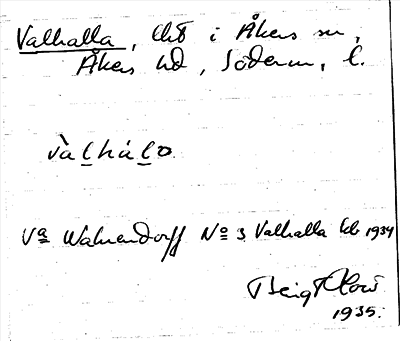 Valhalla, lht i Åkers sn,
Åkers hd, Söderm. l.
vàlhálo
Va Wahrendorff No 3 Valhalla kb 1934
1935.